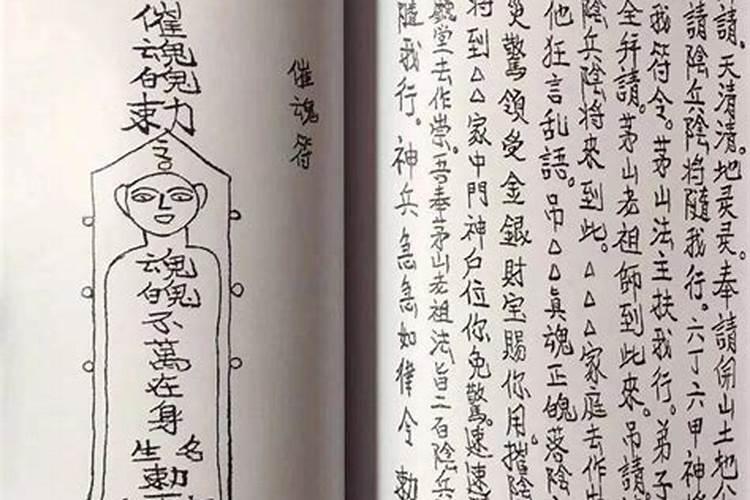 請。天清清。地灵灵。奉請開山土地公
請陰兵陰将隨我行。六丁六甲神将
我符令。茅山法主扶我行。弟子
全拜請。茅山老祖師到此來。吊請
陰兵陰将來到此。△△△家庭去作
他狂言乱語。吊△△真魂正魄落陰
災驚領受金銀財宝賜你用。摧陰
将到△△家中門神户位你免驚。速速
堂去作祟。吾奉茅山老祖法旨二百陰兵
隨我行。神兵急急如律令 勅
催魂符
催魂魄勅
魂魄不萬在身勅
名
生